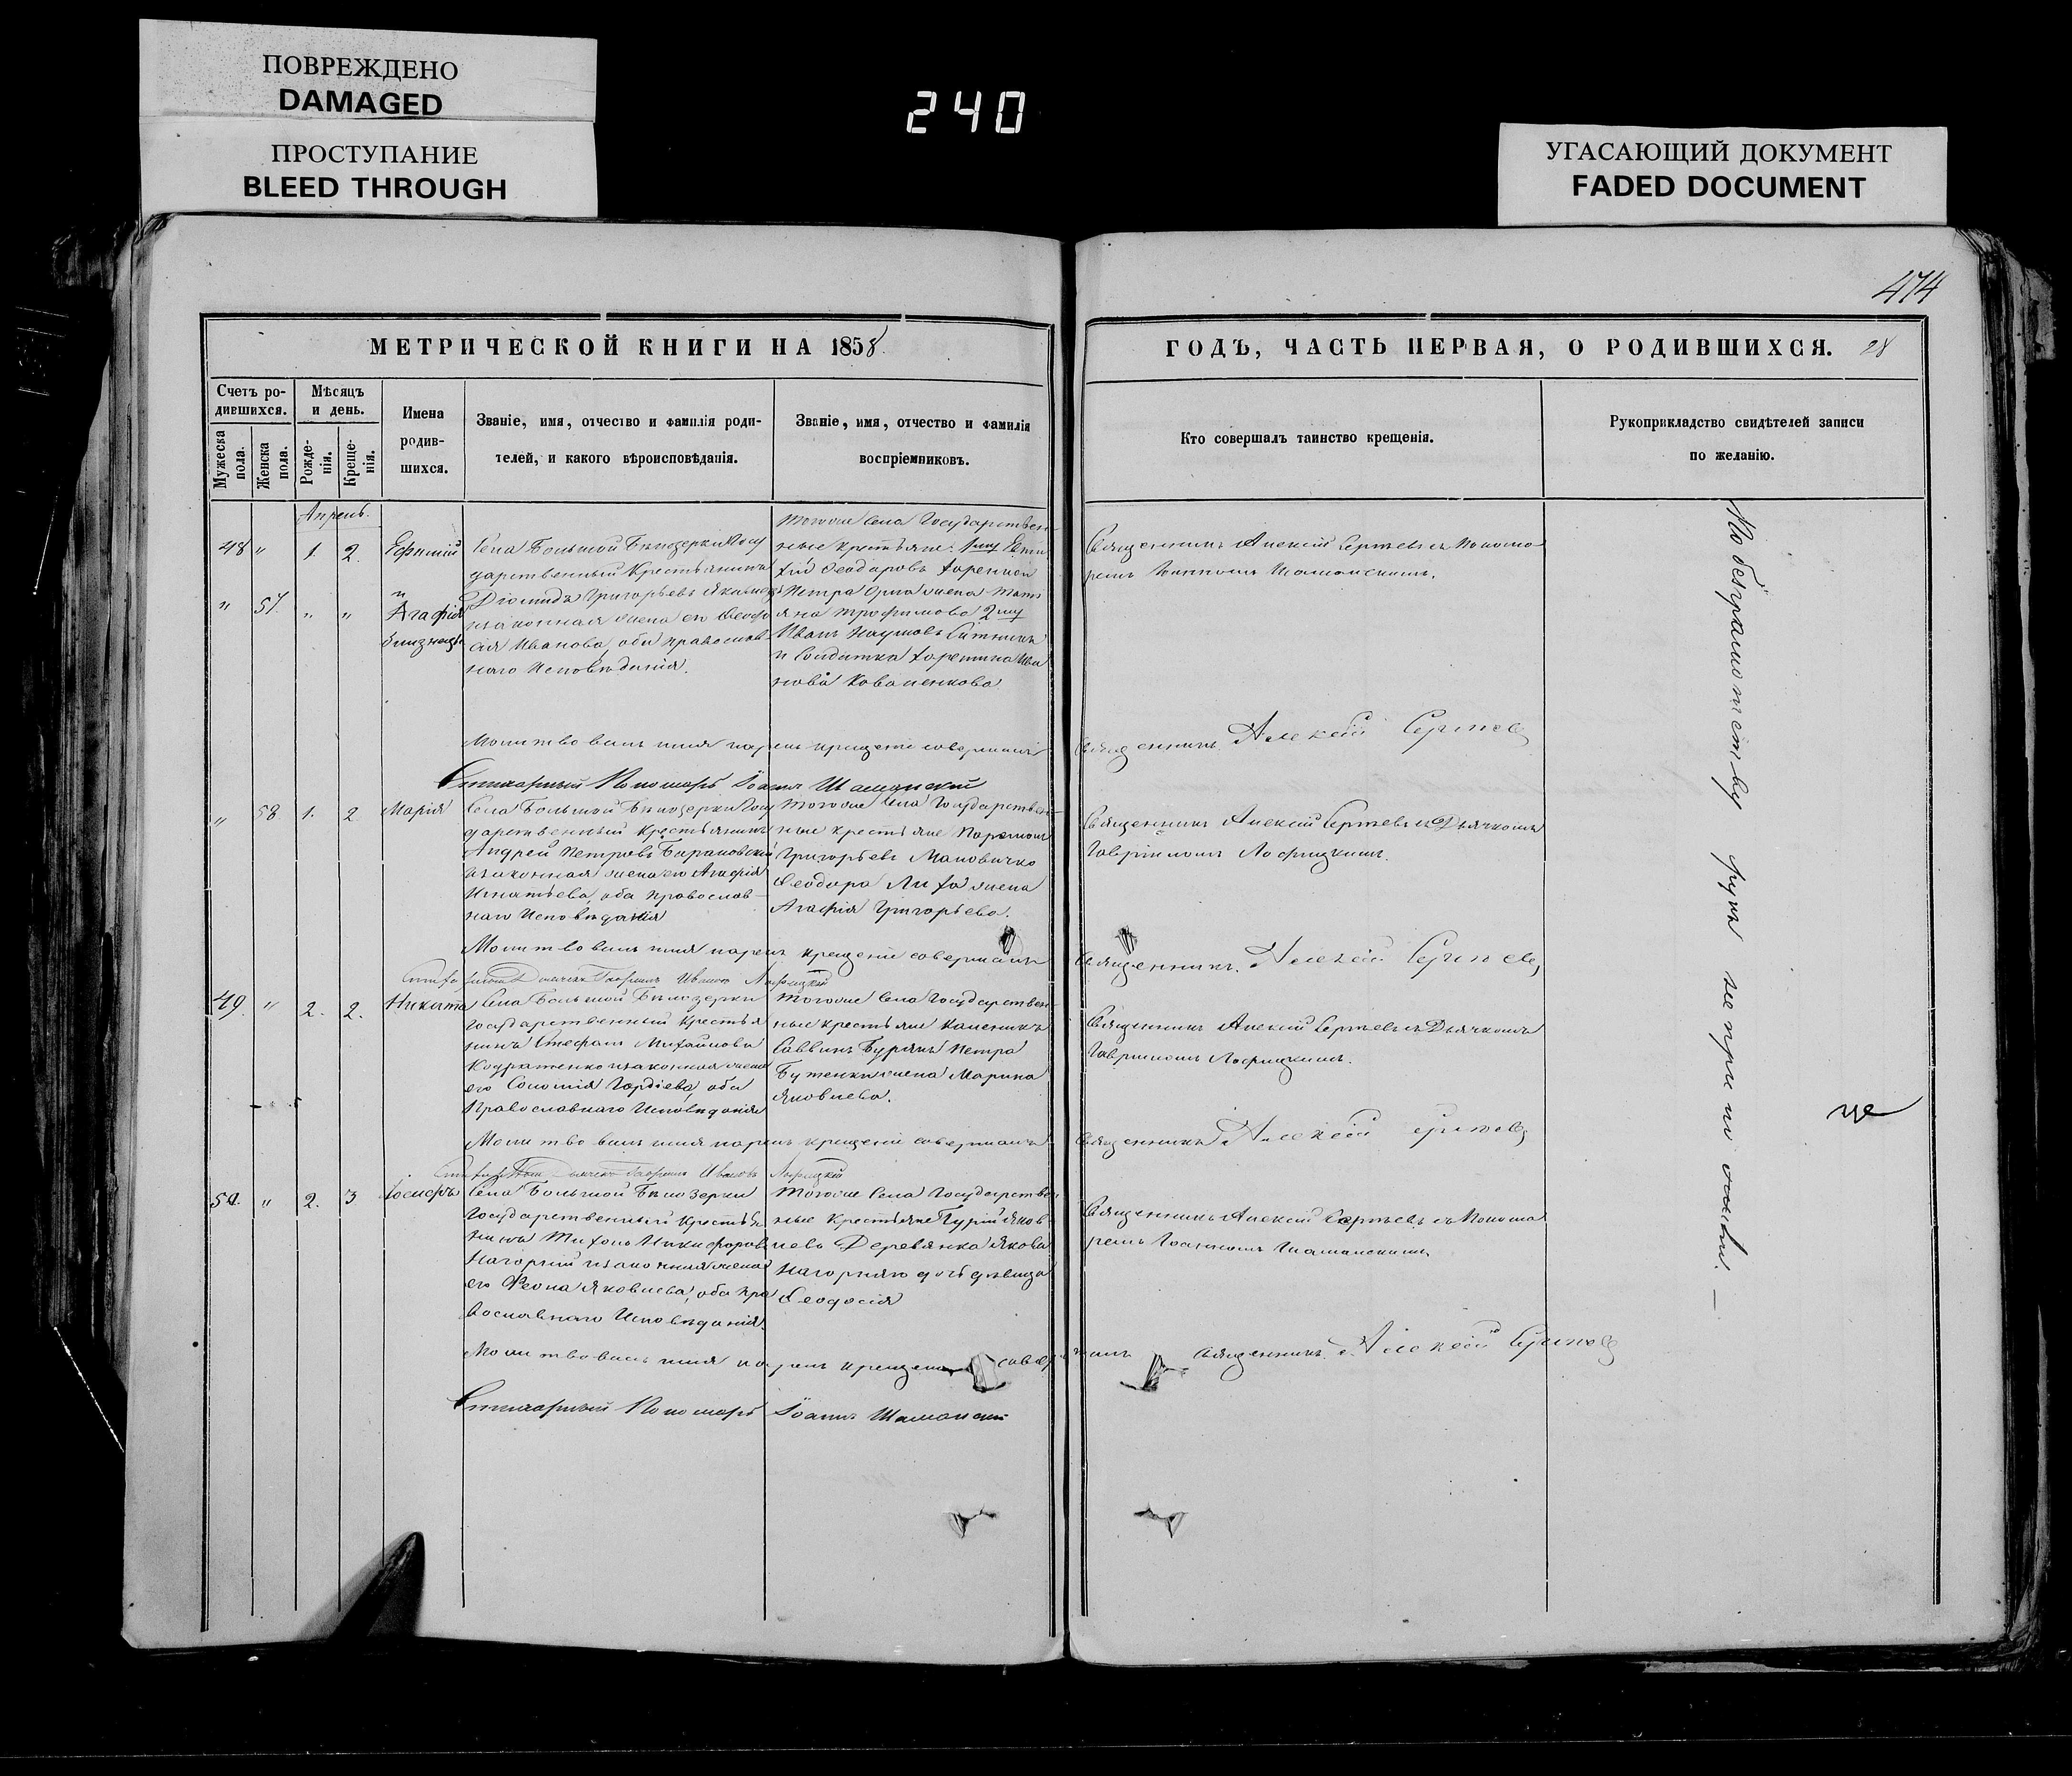 ПОВРЕЖДЕНО
DAMAGED
ПРОСТУПАНИЕ
BLEED THROUGH
240
УГАСАЮЩИЙ ДОКУМЕНТ
FADED DOCUMENT
474
МЕТРИЧЕСКОЙ КНИГИ НА 1858
Счетъ ро-
дившихся.
Мужеска пола.
Женска пола.
Мѣсяцъ
и день.
Рожде-
нія.
Креще-
нія.
Имена
родив-
шихся.
Званіе, имя, отчество и фамилія роди-
телей, и какого вѣроисповѣданія.
Званіе, имя, отчество и фамилія
воспріемниковъ.
ГОДЪ, ЧАСТЬ ПЕРВАЯ, О РОДИВШИХСЯ. 28
Кто совершалъ таинство крещенія.
Рукоприкладство свидѣтелей записи
по желанію.
Апрель.
48 " 1. 2. Ефимій
" 57. " " и Агафія
близнецы
Села Большой Бѣлозерки Госу
дарственный Крестьянинъ
Діомидъ Григорьевъ
и законная жена его Феодо
сія Иванова, оба православ
наго Исповѣданія.
тогоже Села Государствен-
ные крестьяне: 1й
Феодоровъ
Петра Орла жена Тати
яна Трофимова 2й
Иванъ Наумовъ Ситникъ
и Солдатка Ива
нова Коваленкова
Священникъ Алексій Сергѣевъ съ Понома
ремъ Іоанномъ Шаманскимъ.
Молитвовалъ имя нарекъ крещеніе совершилъ
Священникъ Алексій Сергѣевъ
Стихарный Пономарь Іоаннъ Шаманскій
" 58. 1. 2 Марія
Села Большой Бѣлозерки Госу
дарственный Крестьянинъ
Андрей Петровъ Барановскій
и законная жена его Агафія
Игнатьева, оба Православ-
наго Исповѣданія
тогоже Села Государствен-
ные крестьяне
Григорьевъ Маловичко
Феодора Лихо жена
Агафія Григорьева.
Священникъ Алексій Сергѣевъ съ Дьячкомъ
Гавріиломъ
Молитвовалъ имя нарекъ крещеніе совершалъ
Священникъ Алексій Сергѣевъ
49. " 2. 2. Никита
Села Большой Бѣлозерки
Государственный Крестья
нинъ Стефанъ Михайловъ
Кондратенко и законная жена
его Соломія Гордіева, оба
Православнаго Исповѣданія
тогоже Села Государствен-
ные крестьяне Каленикъ
Саввинъ Бурякъ Петра
Бутенки жена Марина
Яковлева.
Священникъ Алексій Сергѣевъ съ Дьячкомъ
Гавріиломъ
Молитвовалъ имя нарекъ крещеніе совершалъ
Священникъ Алексій Сергѣевъ
50. " 2. 3 Іосифъ
Села Большой Бѣлозерки
Государственный Крестья
нинъ Тихонъ Никифоровъ
Нагорный и законная жена
его Феона Яковлева, оба Пра
вославнаго Исповѣданія.
тогоже Села Государствен
ные Крестьяне Гурій Яков-
левъ Деревянка Якова
Нагорняго дочь дѣвица
Феодосія
Священникъ Алексій Сергѣевъ съ Понома
ремъ Іоанномъ Шаманскимъ
Молитвовалъ имя нарекъ крещеніе совершалъ
Священникъ Алексій Сергѣевъ
Стихарный Пономарь Іоаннъ Шаманскій
По безграмотству рукъ не приложили. —